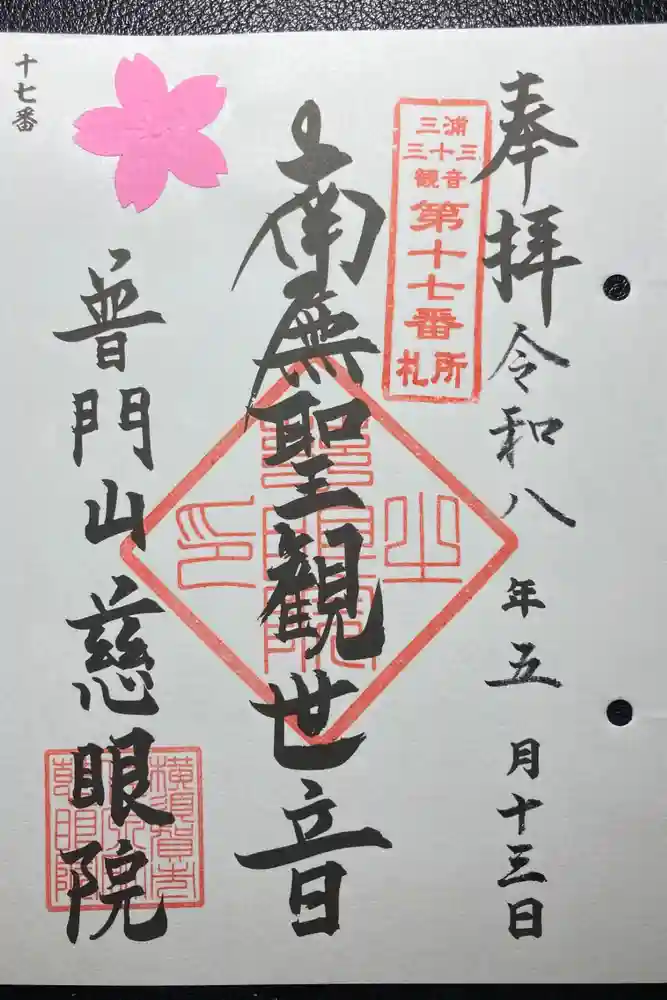 奉拝 令和八年五月十三日
三浦
三十三
観音
第十七番
札所
南無聖観世音
普門山 慈眼院
十七番